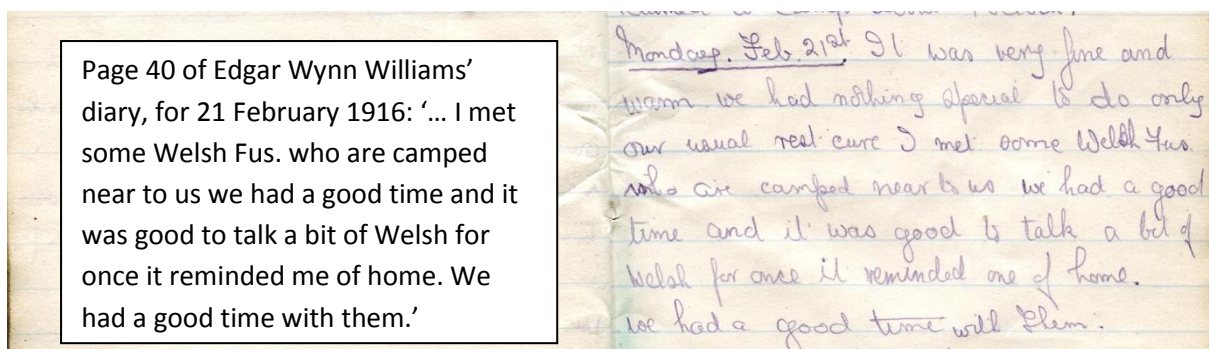 Page 40 of Edgar Wynn Williams’
diary, for 21 February 1916: ‘… I met
some Welsh Fus. who are camped
near to us we had a good time and it
was good to talk a bit of Welsh for
once it reminded me of home. We
had a good time with them.’
Monday. Feb. 21st It was very fine and
warm we had nothing special to do only
our usual rest cure I met some Welsh Fus.
who are camped near to us we had a good
time and it was good to talk a bit of
Welsh for once it reminded one of home.
we had a good time with them.